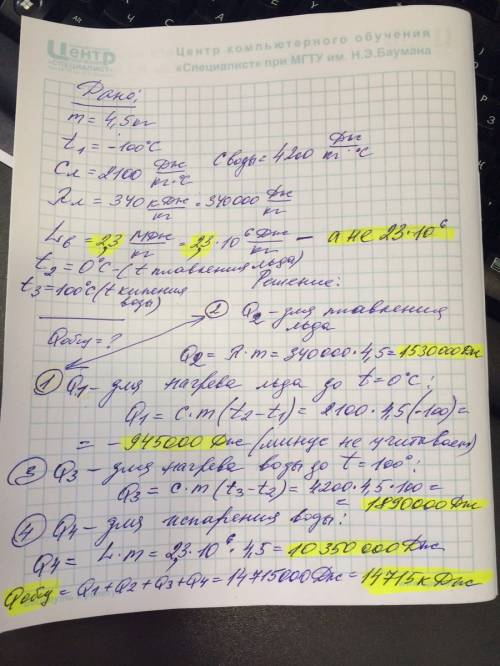 Центр компьютерного обучения
«Специалист» при МГТУ им. Н.Э.Баумана
Центр
«СПЕЦИАЛИСТ»
Дано:
m = 4,5 кг
t₁ = -100°C
Cл = 2100 Дж/кг·°C    C воды = 4200 Дж/кг·°C
λл = 340 кДж/кг = 340000 Дж/кг
Lв = 2,3 МДж/кг = 2,3·10⁶ Дж/кг — а не 23·10⁶
t₂ = 0°C – (t плавления льда)
t₃ = 100°C (t кипения воды)
Решение:
Qобщ = ?
② Q₂ – для плавления льда
Q₂ = λ·m = 340000·4,5 = 1530000 Дж
① Q₁ – для нагрева льда до t = 0°C:
Q₁ = c·m(t₂-t₁) = 2100·4,5(-100) =
= – 945000 Дж (минус не учитываем)
③ Q₃ – для нагрева воды до t = 100°:
Q₃ = c·m(t₃-t₂) = 4200·4,5·100 =
= 1890000 Дж
④ Q₄ – для испарения воды:
Q₄ = L·m = 2,3·10⁶·4,5 = 10350000 Дж
Qобщ = Q₁+Q₂+Q₃+Q₄ = 14715000 Дж = 14715 кДж